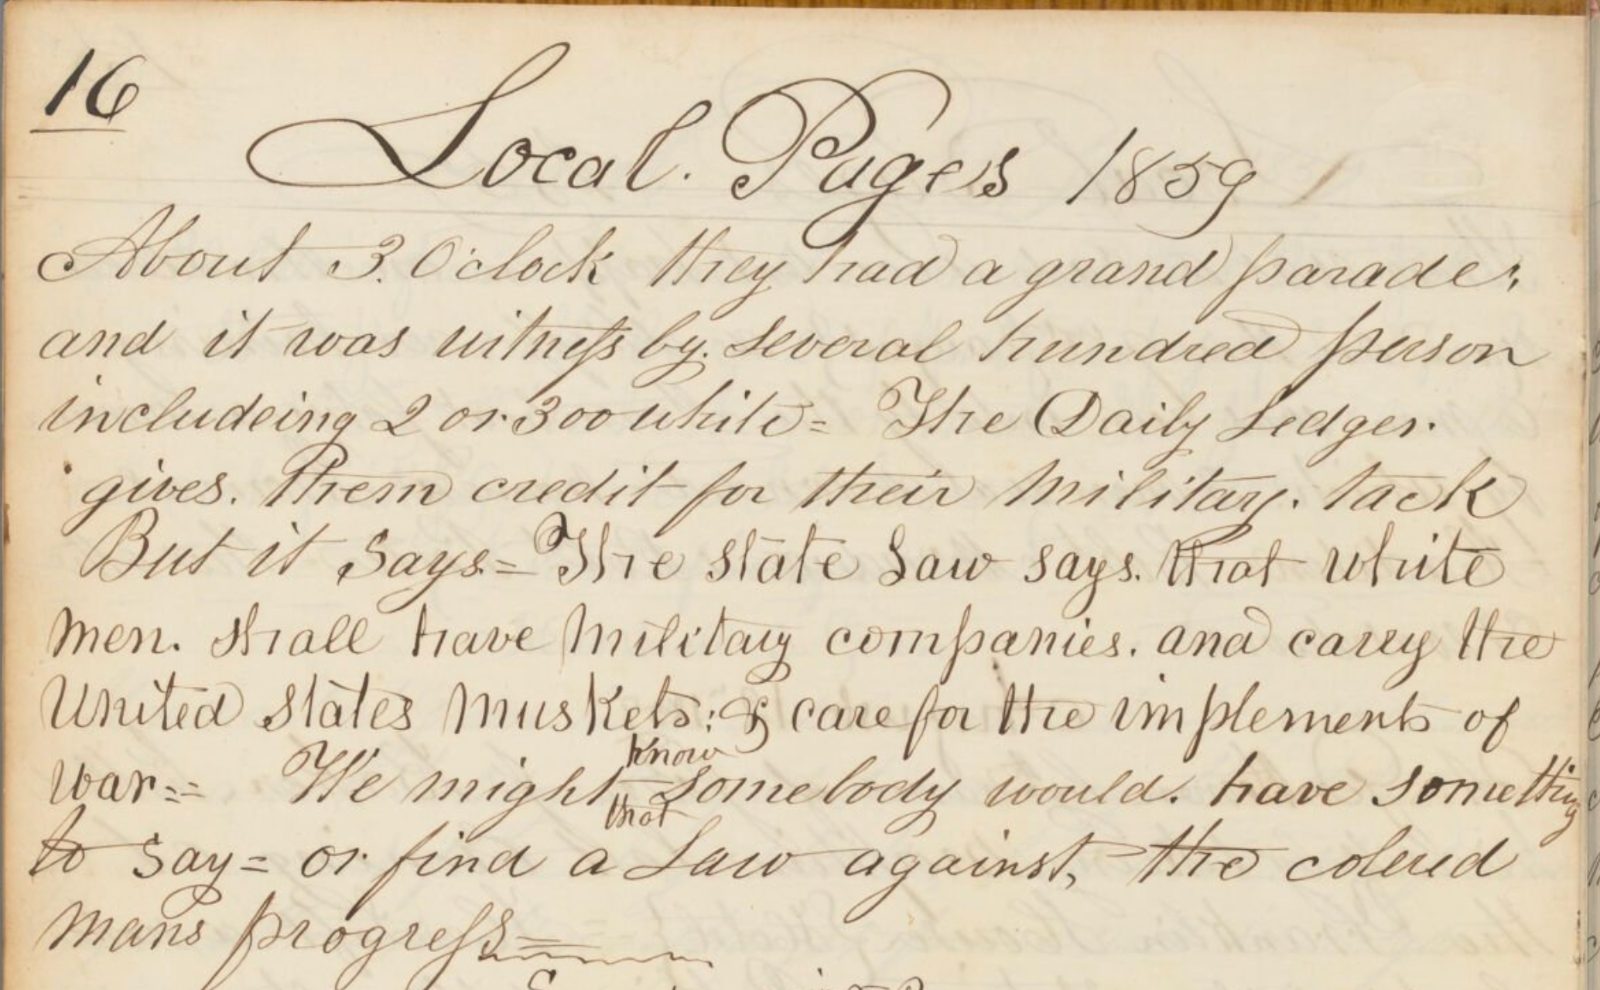 16
Local. Pages 1859
About 3. O'clock they had a grand parade;
and it was witness by. several hundred person
includeing 2 or 300 white= The Daily Ledger.
gives. them credit for their military. tack
But it says= The state Law says. that white
men. shall have military companies. and carry the
United states muskets; & care for the implements of
war== We might know that somebody would. have something
to say= or find a Law against, the colered
mans progress=